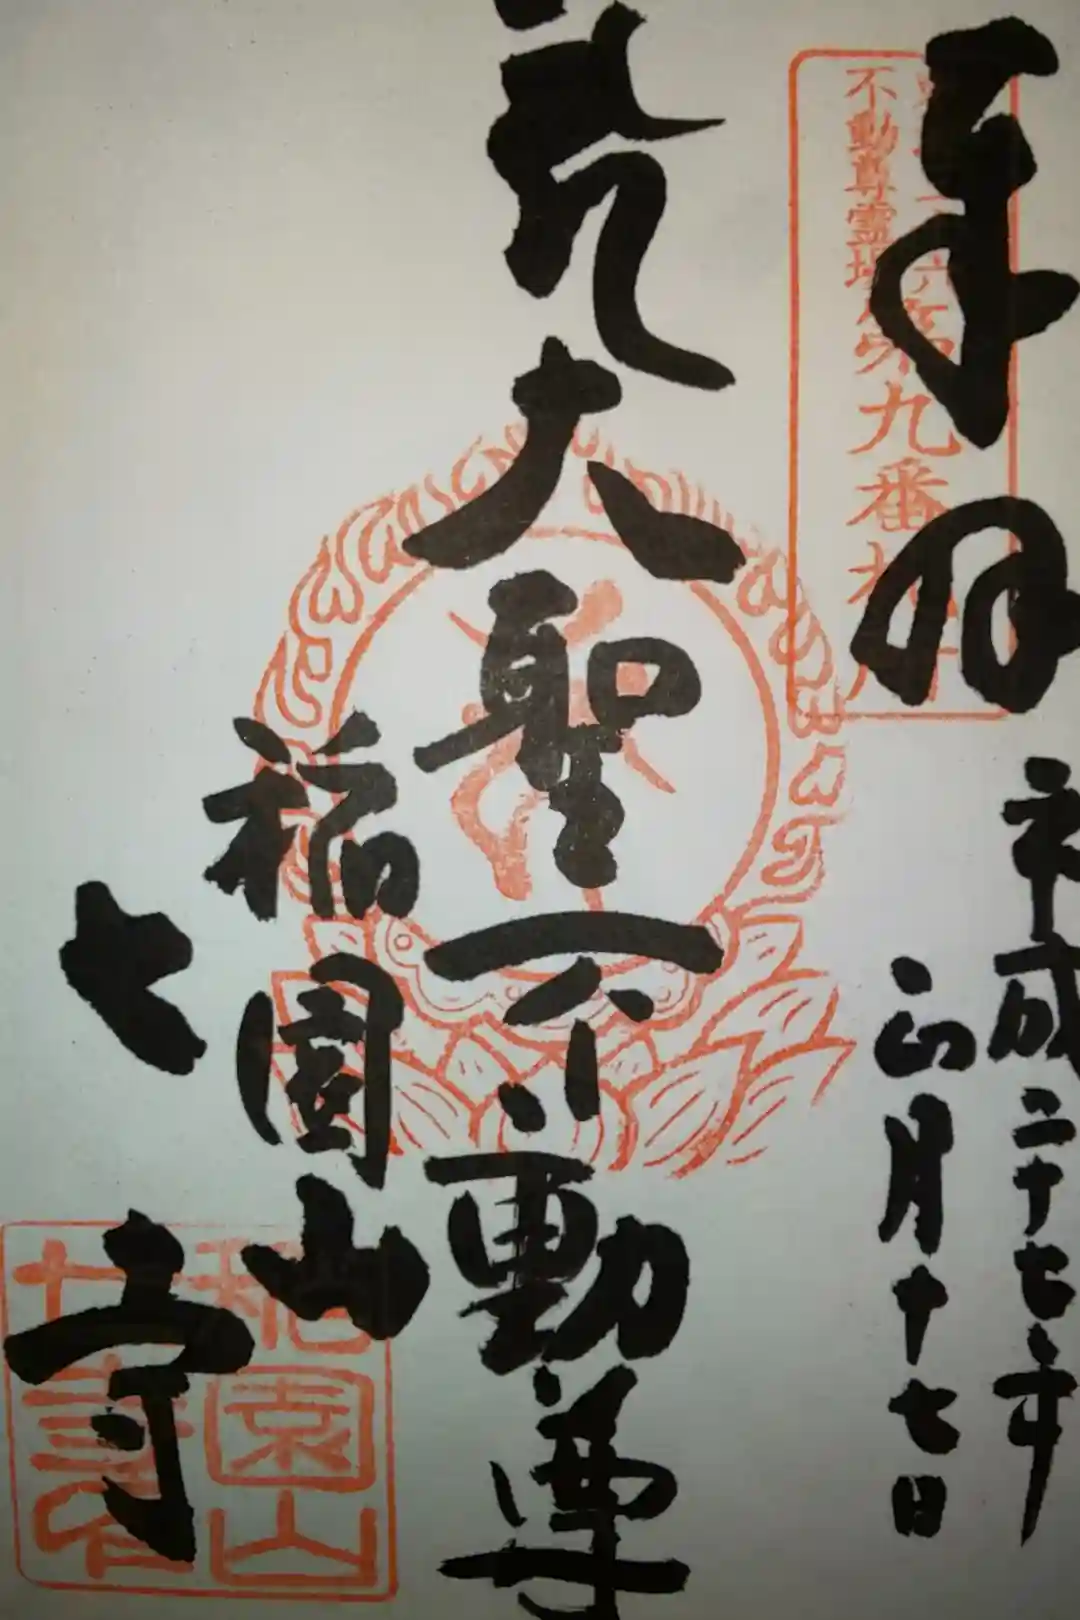 奉拝
平成二十七年
正月十七日
不動尊霊場
第九番札所
大聖不動尊
稲園山
七寺
稲園山
七寺